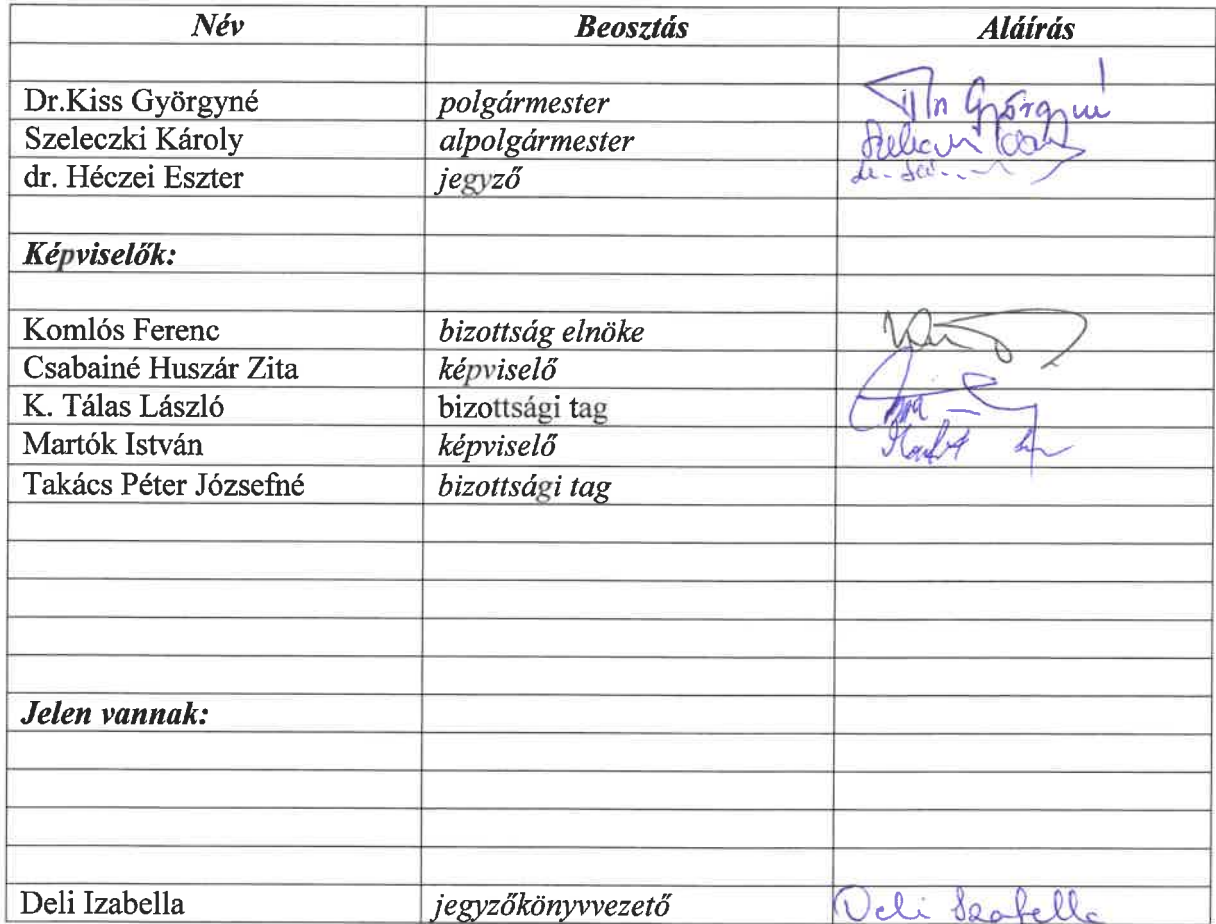 Név Beosztás Aláírás
Dr.Kiss Györgyné polgármester Györgyné
Szeleczki Károly alpolgármester
dr. Héczei Eszter jegyző
Képviselők:
Komlós Ferenc bizottság elnöke
Csabainé Huszár Zita képviselő
K. Tálas László bizottsági tag
Martók István képviselő
Takács Péter Józsefné bizottsági tag
Jelen vannak:
Deli Izabella jegyzőkönyvvezető Deli Izabella